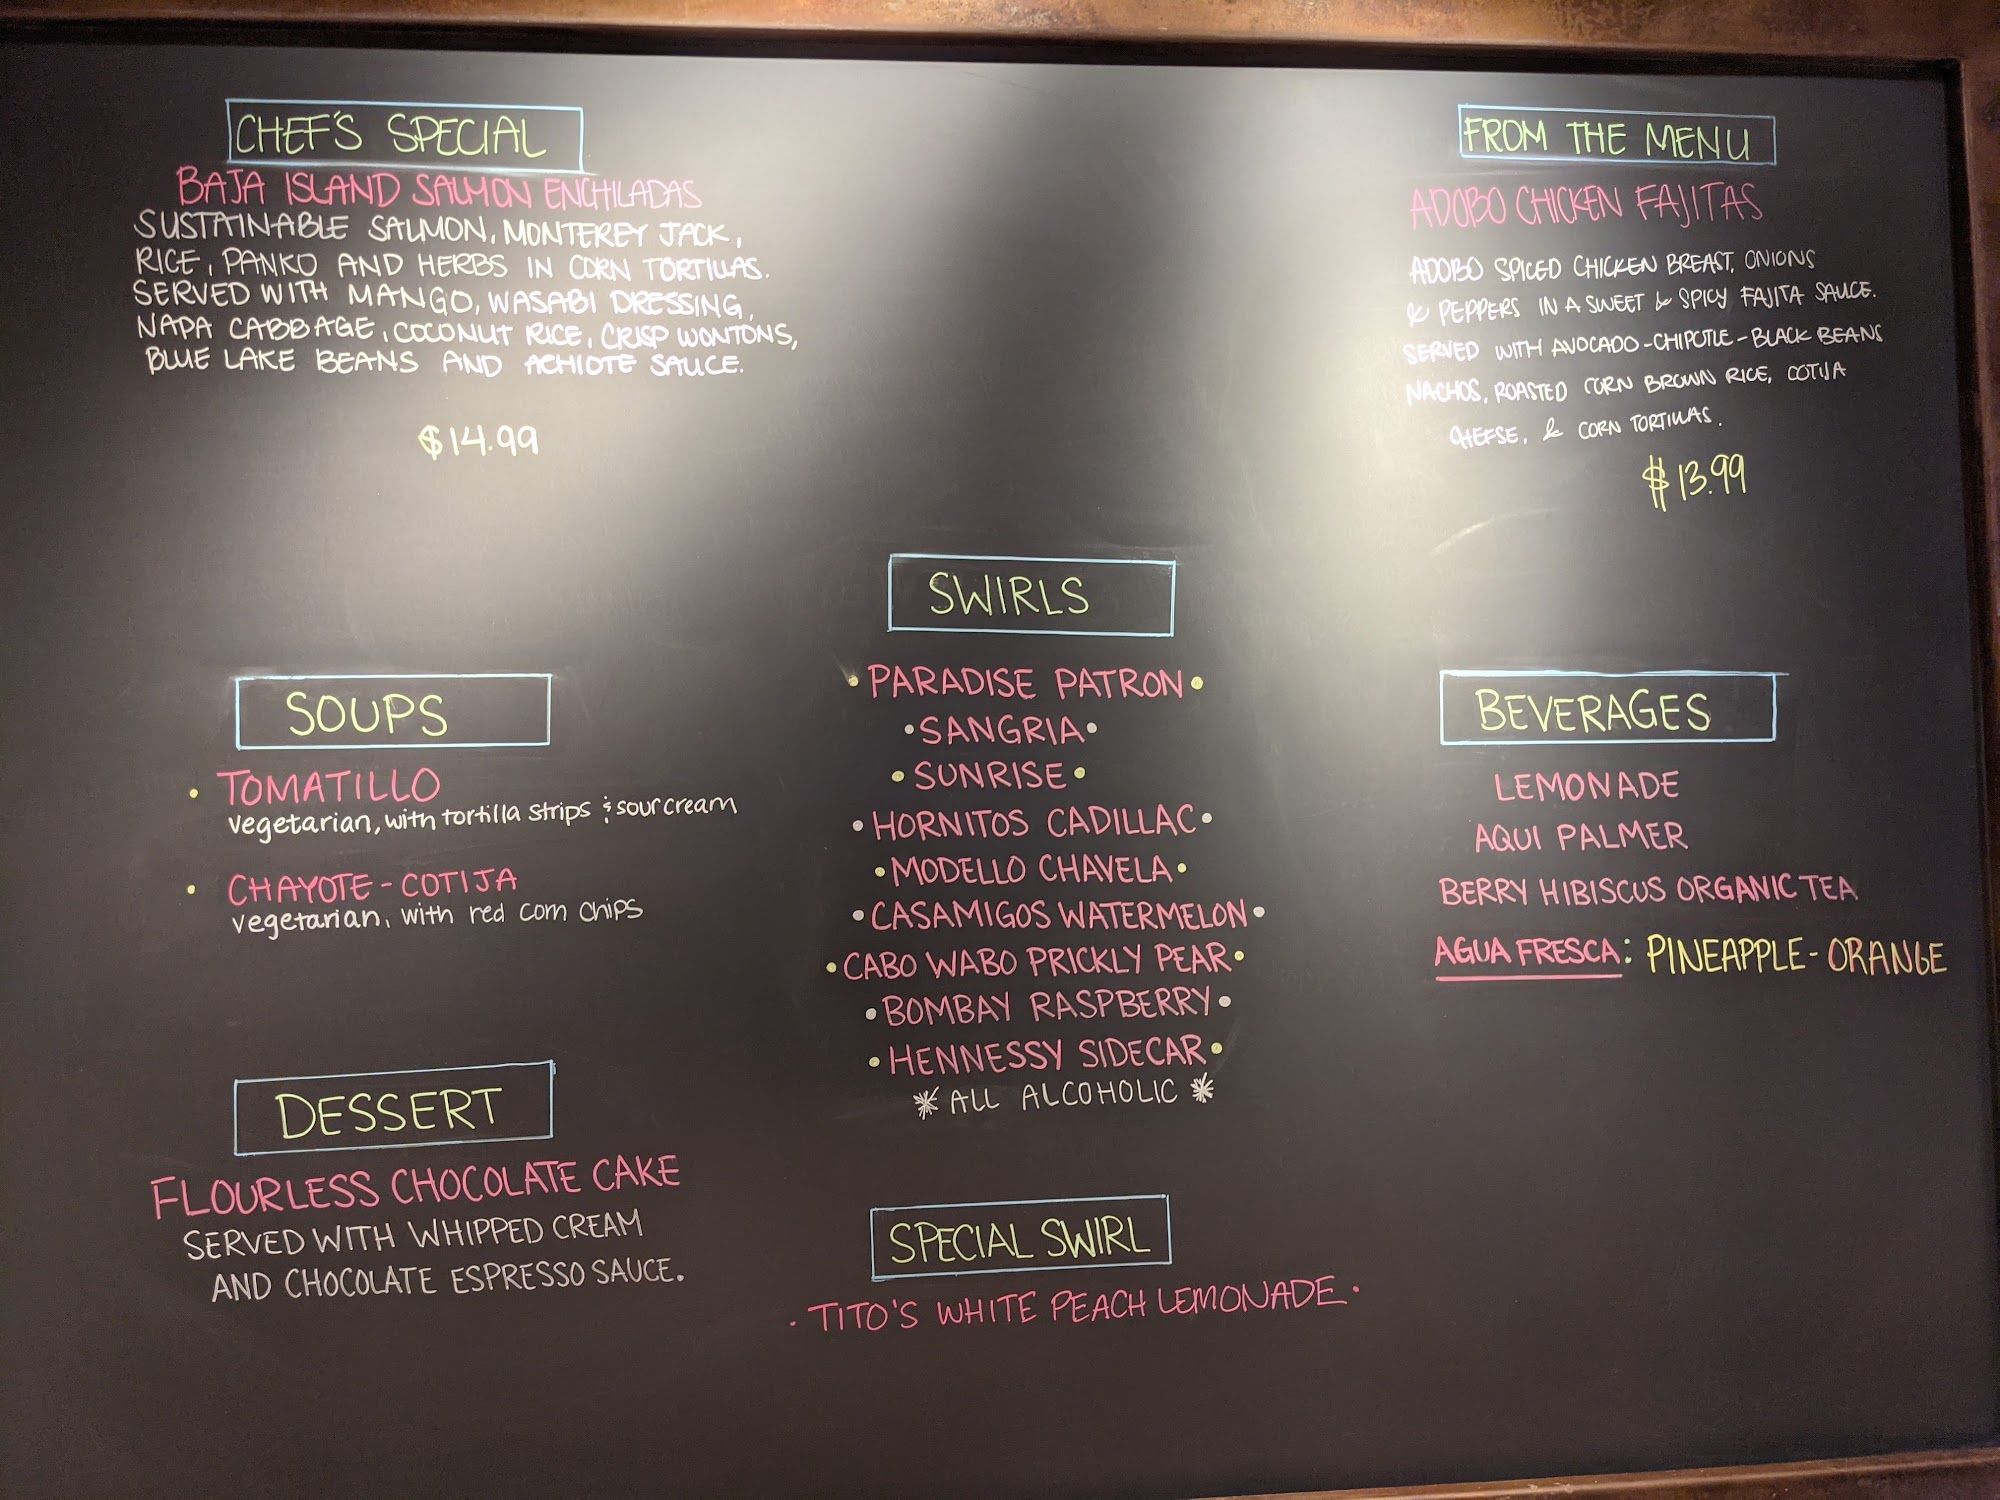 CHEF'S SPECIAL
BAJA ISLAND SALMON ENCHILADAS
SUSTAINABLE SALMON, MONTEREY JACK,
RICE, PANKO AND HERBS IN CORN TORTILLAS.
SERVED WITH MANGO, WASABI DRESSING,
NAPA CABBAGE, COCONUT RICE, CRISP WONTONS,
BLUE LAKE BEANS AND ACHIOTE SAUCE.
$14.99
FROM THE MENU
ADOBO CHICKEN FAJITAS
ADOBO SPICED CHICKEN BREAST, ONIONS
& PEPPERS IN A SWEET & SPICY FAJITA SAUCE.
SERVED WITH AVOCADO-CHIPOTLE-BLACK BEANS
NACHOS, ROASTED CORN BROWN RICE, COTIJA
CHEESE, & CORN TORTILLAS.
$13.99
SOUPS
• TOMATILLO
vegetarian, with tortilla strips & sour cream
• CHAYOTE-COTIJA
vegetarian, with red corn chips
DESSERT
FLOURLESS CHOCOLATE CAKE
SERVED WITH WHIPPED CREAM
AND CHOCOLATE ESPRESSO SAUCE.
SWIRLS
• PARADISE PATRON •
• SANGRIA •
• SUNRISE •
• HORNITOS CADILLAC •
• MODELLO CHAVELA •
• CASAMIGOS WATERMELON •
• CABO WABO PRICKLY PEAR •
• BOMBAY RASPBERRY •
• HENNESSY SIDECAR •
* ALL ALCOHOLIC *
SPECIAL SWIRL
• TITO'S WHITE PEACH LEMONADE •
BEVERAGES
LEMONADE
AQUI PALMER
BERRY HIBISCUS ORGANIC TEA
AGUA FRESCA: PINEAPPLE-ORANGE